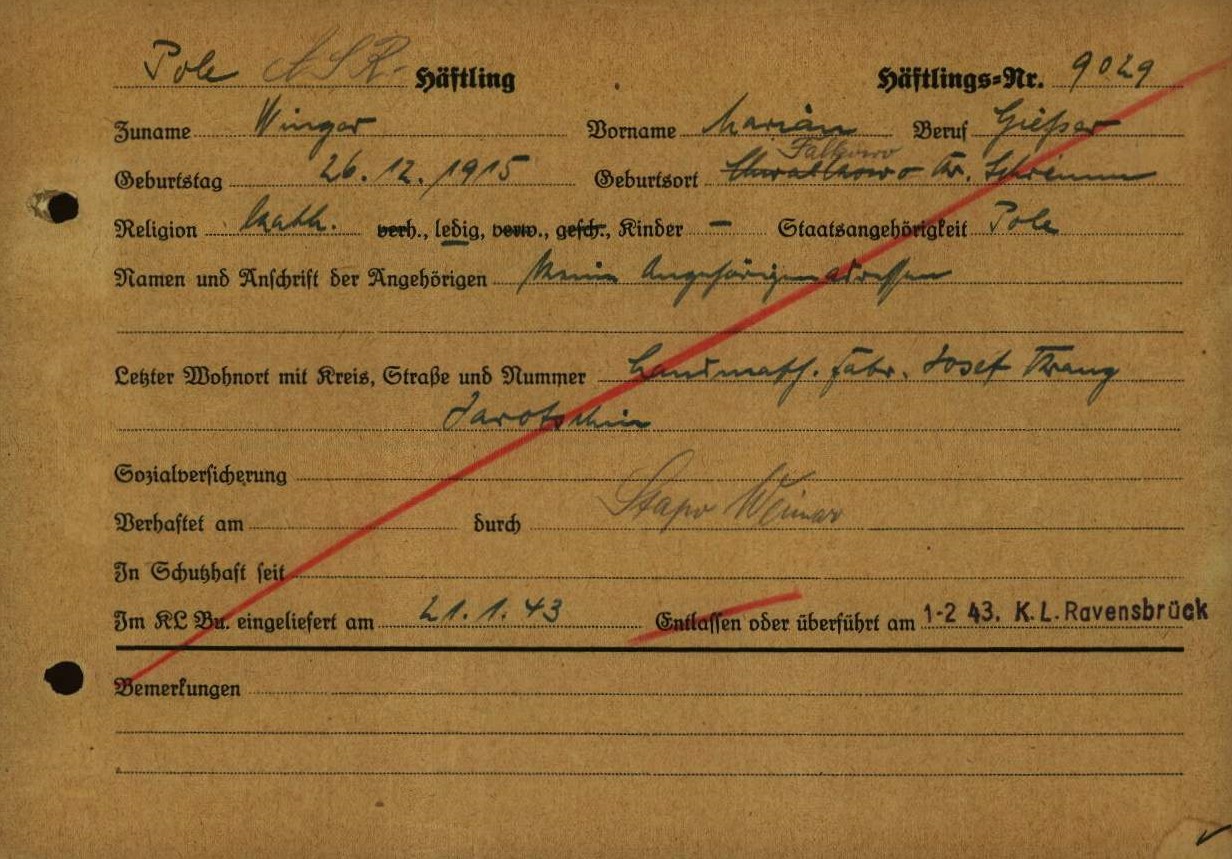 Pole ASR- Häftling Häftlings-Nr. 9029
Zuname Winger Vorname Marian Beruf Gießer
Falkowo
Geburtstag 26.12.1915 Geburtsort Kr. Schrimm
Religion kath. verh., ledig, verw., gesch., Kinder – Staatsangehörigkeit Pole
Namen und Anschrift der Angehörigen Keine Angehörigenadressen
Letzter Wohnort mit Kreis, Straße und Nummer Landmasch. Fabr. Josef
Jarotschin
Sozialversicherung
Verhaftet am durch Stapo Weimar
In Schutzhaft seit
Im KL Bu. eingeliefert am 21.1.43 Entlassen oder überführt am 1-2 43. K.L.Ravensbrück
Bemerkungen